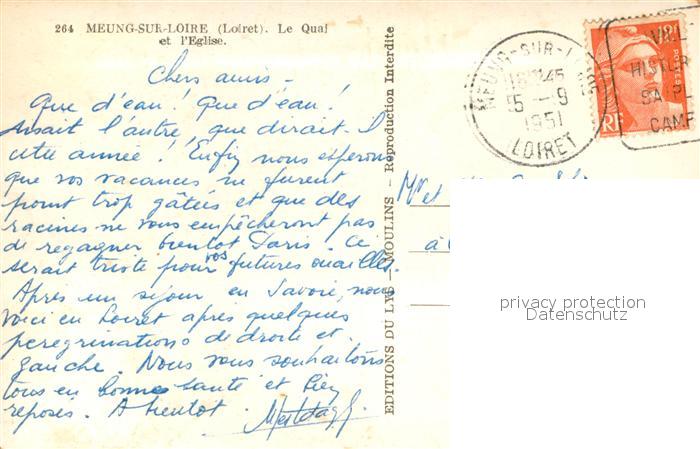 264 MEUNG-SUR-LOIRE (Loiret). Le Quai
et l'Eglise.
Chers amis -
Que d'eau ! Que d'eau !
disait l'autre, que dirait-il
cette année ! Enfin nous espérons
que vos vacances ne furent
point trop gâtées et que des
racines ne vous empêcheront pas
de regagner bientot Paris. Ce
serait triste pour vos futures ouailles.
Après un séjour en Savoie, nous
voici en Loiret après quelques
peregrinations de droite et
gauche. Nous vous souhaitons
tous en bonne santé et bien
reposés. A bientot.
EDITIONS DU LYS - MOULINS - Reproduction Interdite
MEUNG-SUR-LOIRE
5 -9
1951
LOIRET
POSTES
RF
VILL
HISTOR
SA PL
CAMP
Mr et
à
privacy protection
Datenschutz